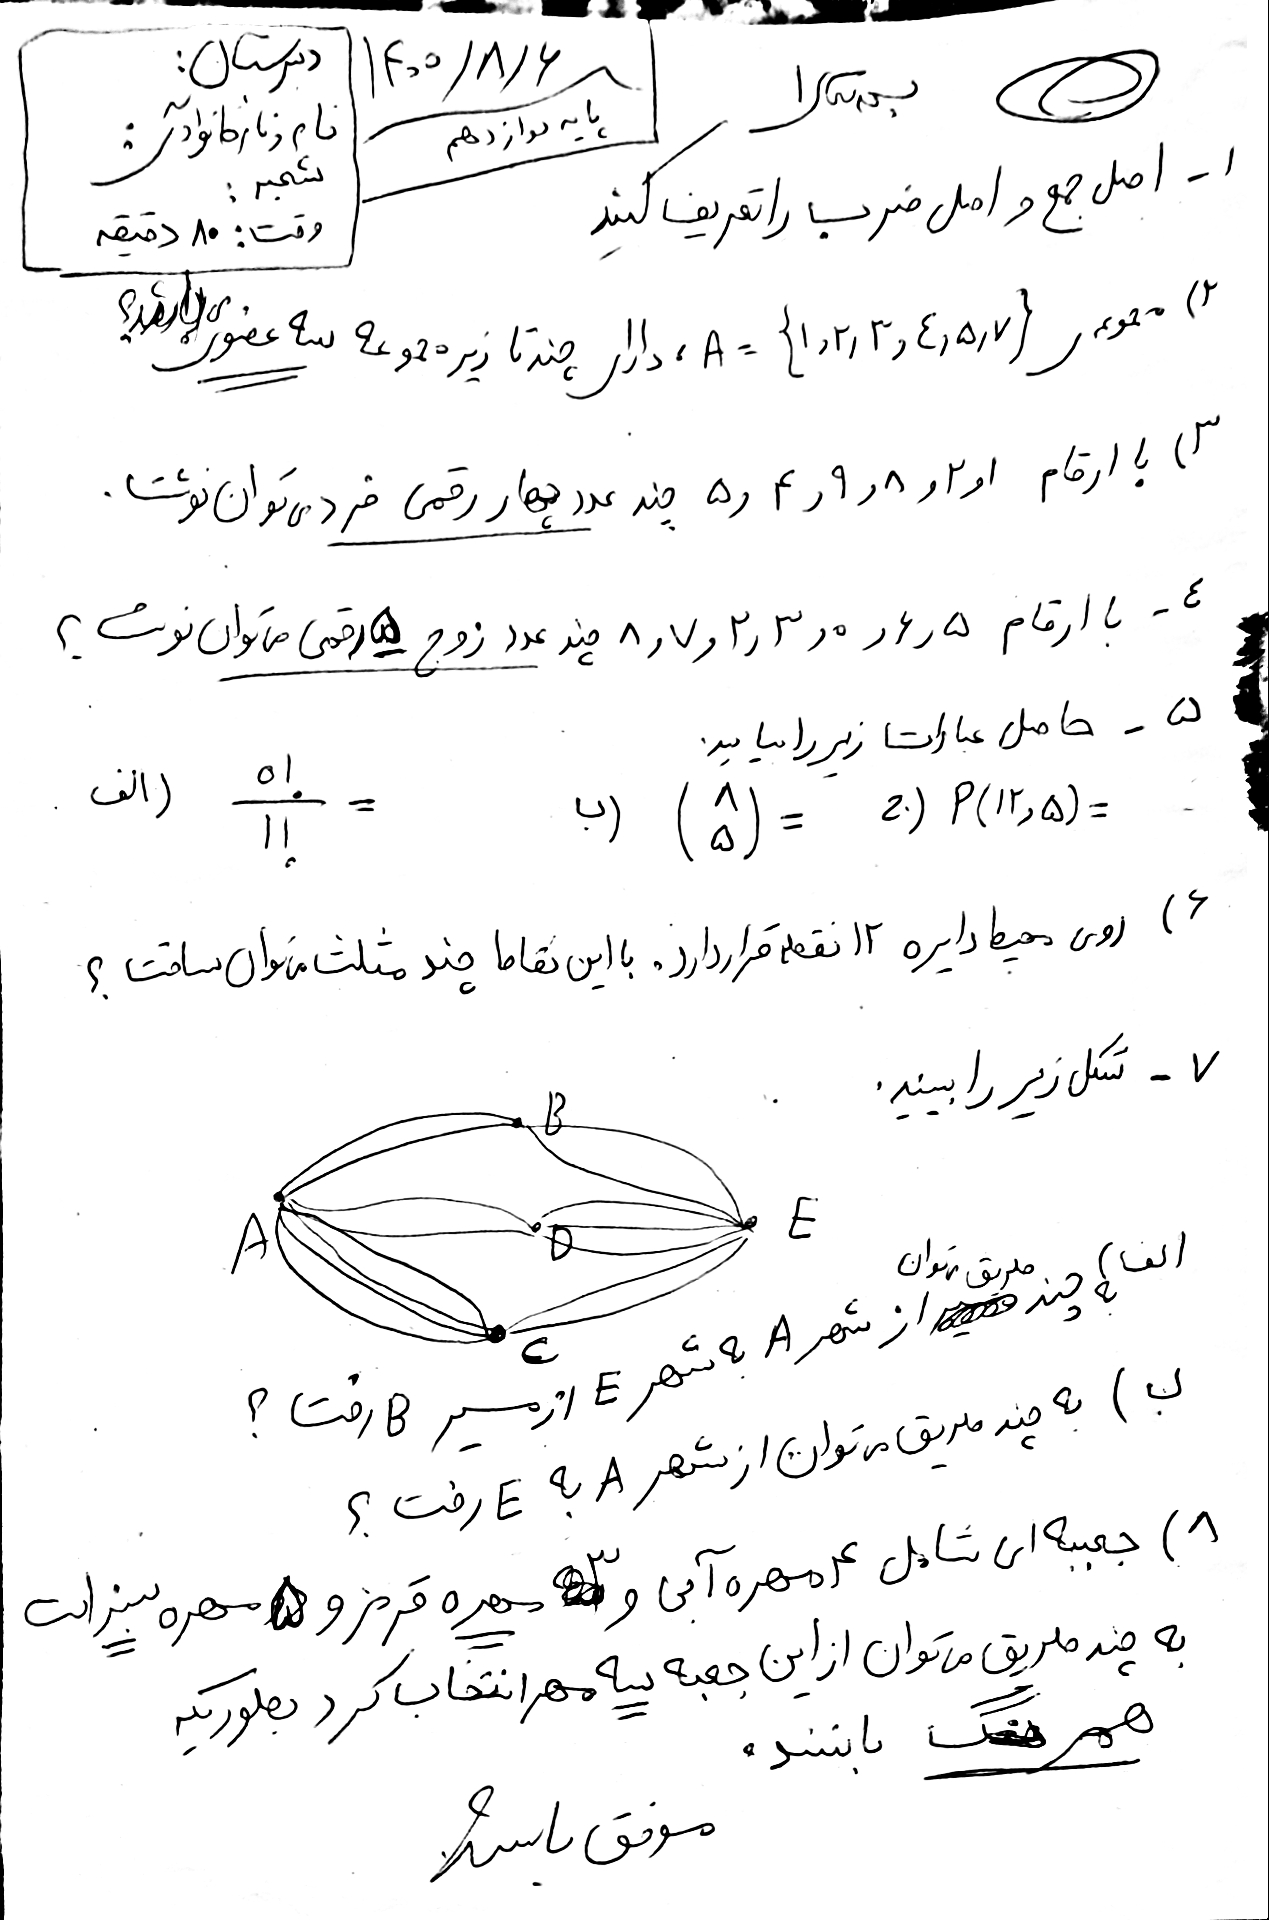 بسمه تعالی
۱۴۰۰/۸/۶
پایه دوازدهم
دبیرستان:
نام و نام خانوادگی:
نام پدر:
وقت: ۸۰ دقیقه
۱- اصل جمع و اصل ضرب را تعریف کنید
۲) مجموعه ی A = {۱,۲,۳,٤,۵,۷} ، دارای چند تا زیر مجموعه سه عضوی می باشد؟
۳) با ارقام ۱ و ۲ و ۸ و ۹ و ۴ و ۵ چند عدد چهار رقمی فرد می توان نوشت.
٤- با ارقام ۵ و ۶ و ۰ و ۳ و ۲ و ۷ و ۸ چند عدد زوج ۵ رقمی می توان نوشت؟
۵- حاصل عبارات زیر را بیابید.
الف) ۱۵! / ۱۱! =
ب) (۸ ۵) =
ج) P(۱۲,۵) =
۶) روی محیط دایره ۱۲ نقطه قرار دارد. با این نقاط چند مثلث می توان ساخت؟
۷- شکل زیر را ببینید.
B
A
D
E
C
الف) به چند طریق می توان از شهر A به شهر E از مسیر B رفت؟
ب) به چند طریق می توان از شهر A به E رفت؟
۸) جعبه ای شامل ۴ مهره آبی و ۳ مهره قرمز و ۵ مهره سبز است
به چند طریق می توان از این جعبه سه مهره انتخاب کرد بطوریکه
همرنگ باشند.
موفق باشید